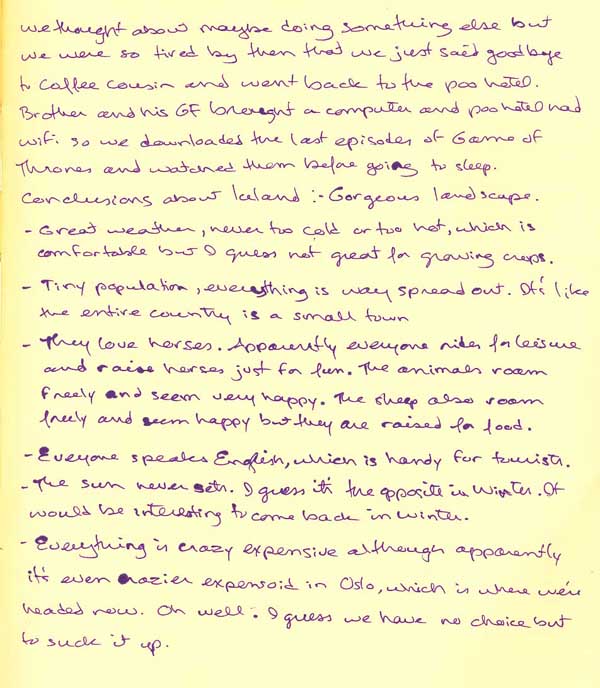 we thought about maybe doing something else but
we were so tired by then that we just said goodbye
to coffee cousin and went back to the poo hotel.
Brother and his GF brought a computer and poo hotel had
wifi so we downloaded the last episodes of Game of
Thrones and watched them before going to sleep.
Conclusions about Iceland :- Gorgeous landscape.
- Great weather, never too cold or too hot, which is
comfortable but I guess not great for growing crops.
- Tiny population, everything is way spread out. It's like
the entire country is a small town
- They love horses. Apparently everyone rides for leisure
and raise horses just for fun. The animals roam
freely and seem very happy. The sheep also roam
freely and seem happy but they are raised for food.
- Everyone speaks English, which is handy for tourists.
- The sun never sets. I guess it's the opposite in Winter. It
would be interesting to come back in winter.
- Everything is crazy expensive although apparently
it's even crazier expensoid in Oslo, which is where we're
headed now. Oh well. I guess we have no choice but
to suck it up.